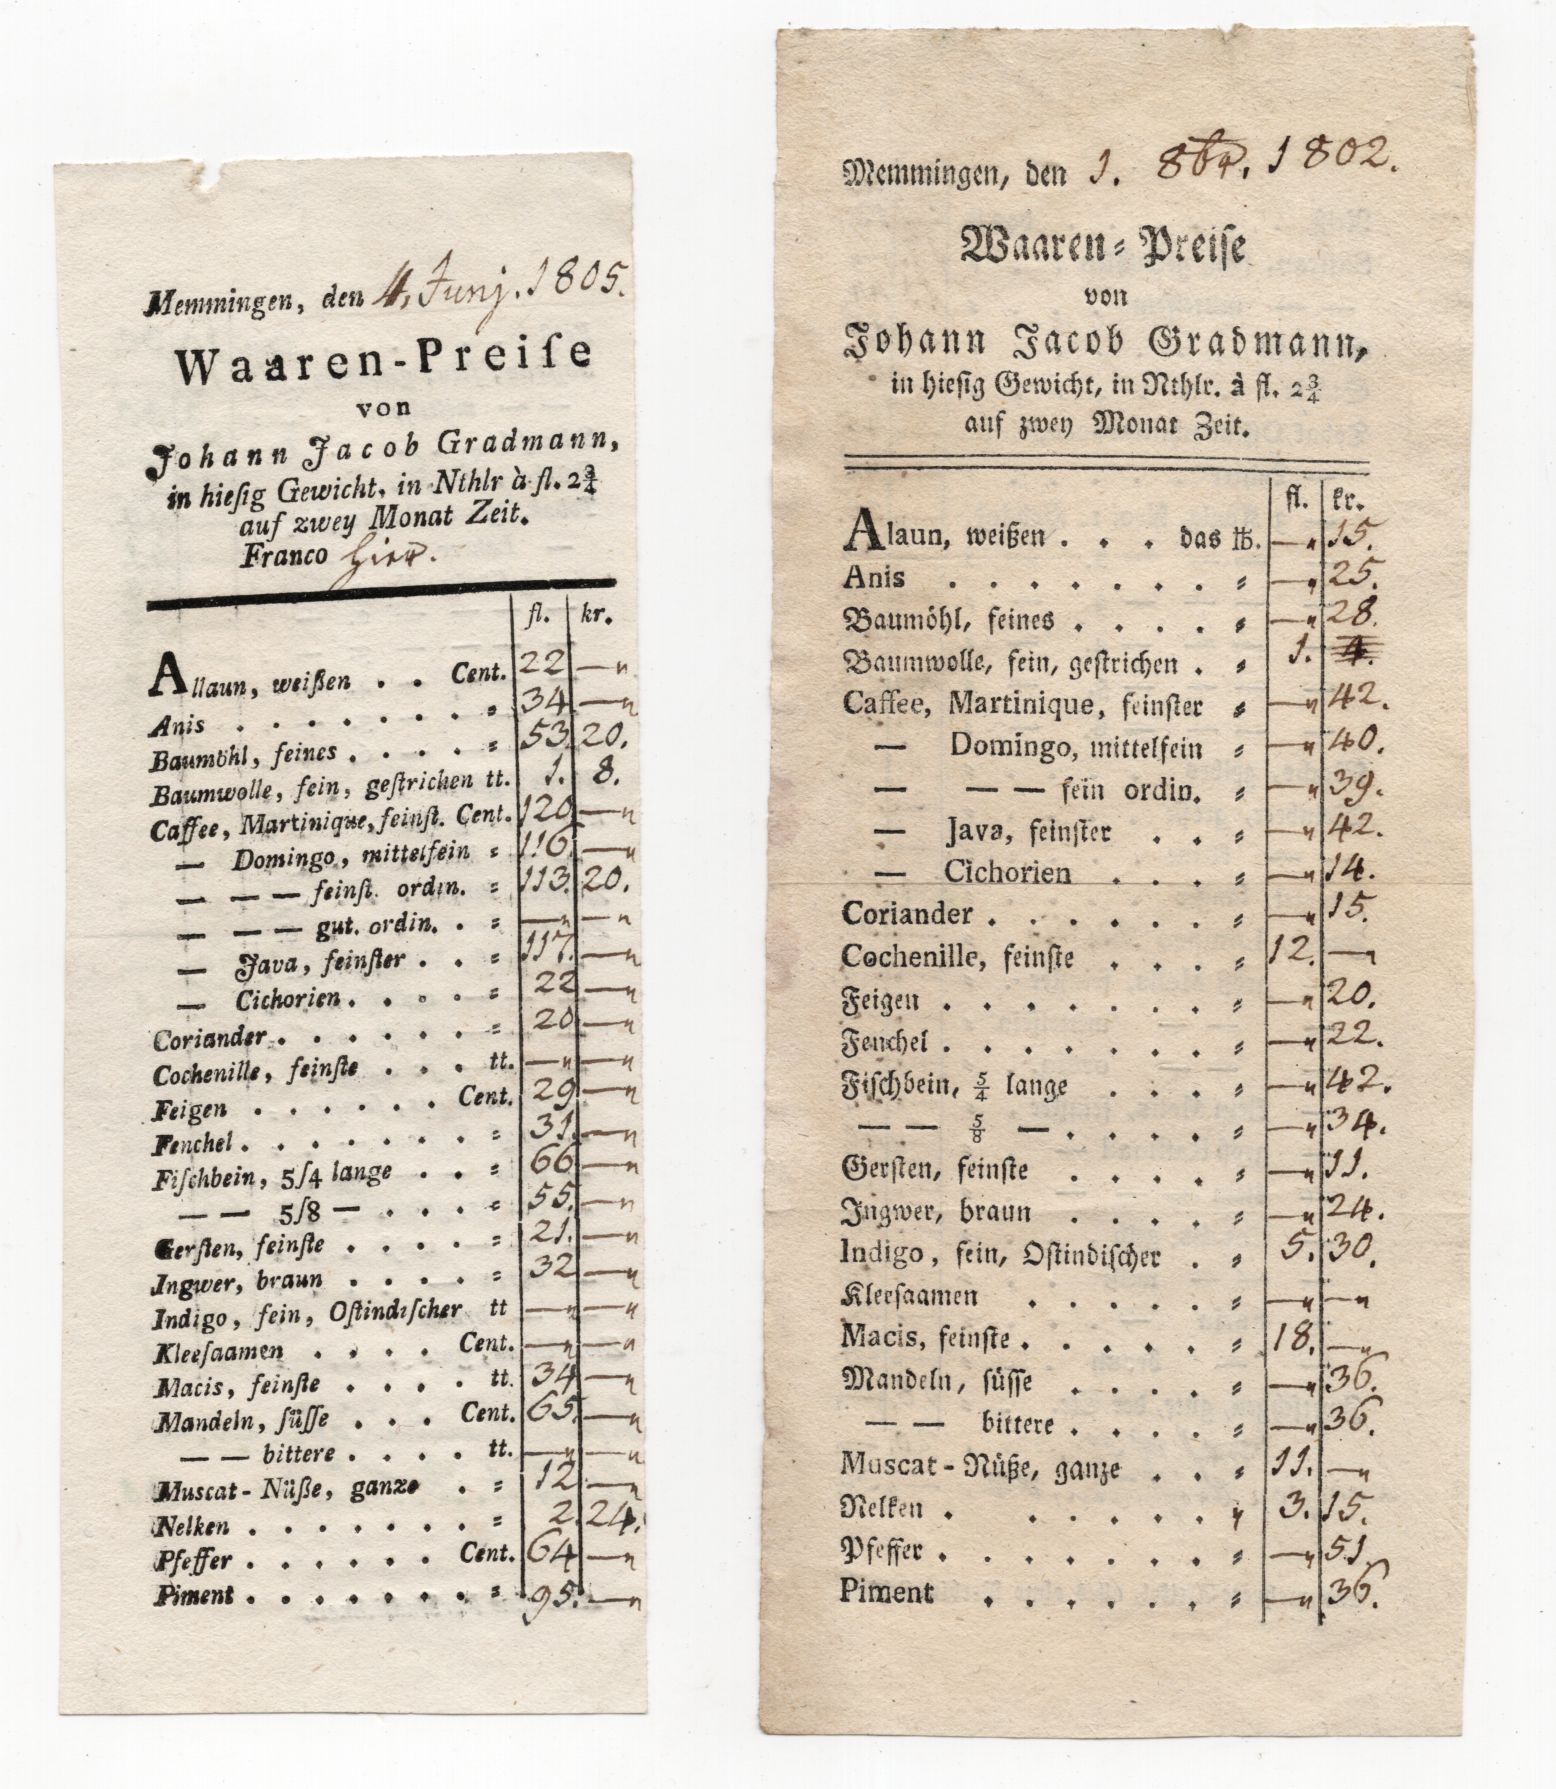 Memmingen, den 4. Junj. 1805.
Waaren-Preiſe
von
Johann Jacob Gradmann,
in hieſig Gewicht, in Nthlr à fl. 2¾
auf zwey Monat Zeit.
Franco hier.
fl. kr.
Allaun, weißen . . Cent. 22 —„
Anis . . . . . . . . = 34 —„
Baumöhl, feines . . . . = 53 20.
Baumwolle, fein, geſtrichen tt. 1. 8.
Caffee, Martinique, feinſt. Cent. 120 —„
— Domingo, mittelfein = 116 —„
— — — feinſt. ordin. = 113. 20.
— — — gut. ordin. . = —„ —„
— Java, feinſter . . = 117. —„
— Cichorien . . . . = 22 —„
Coriander . . . . . . = 20 —„
Cochenille, feinſte . . . tt. —„ —„
Feigen . . . . . . Cent. 29 —„
Fenchel . . . . . . . = 31. —„
Fiſchbein, 5/4 lange . . = 66 —„
— — 5/8 — . . . = 55. —„
Gerſten, feinſte . . . . = 21. —„
Ingwer, braun . . . . = 32 —„
Indigo, fein, Oſtindiſcher tt —„ —„
Kleeſaamen . . . . Cent. —„ —„
Macis, feinſte . . . . tt. 34 —„
Mandeln, ſüſſe . . . Cent. 65. —„
— — bittere . . . . tt. —„ —„
Muscat-Nüße, ganze . = 12 —„
Nelken . . . . . . . = 2. 24.
Pfeffer . . . . . . Cent. 64 —„
Piment . . . . . . . = 95. —„
Memmingen, den 1. 8br. 1802.
Waaren-Preiſe
von
Johann Jacob Gradmann,
in hieſig Gewicht, in Nthlr. à fl. 2¾
auf zwey Monat Zeit.
fl. kr.
Alaun, weißen . . . das ℔. —„ 15.
Anis . . . . . . . = —„ 25.
Baumöhl, feines . . . . = —„ 28.
Baumwolle, fein, geſtrichen . = 1. 4.
Caffee, Martinique, feinſter = —„ 42.
— Domingo, mittelfein = —„ 40.
— — — fein ordin. = —„ 39.
— Java, feinſter . . = —„ 42.
— Cichorien . . . = —„ 14.
Coriander . . . . . . = —„ 15.
Cochenille, feinſte . . . = 12. —„
Feigen . . . . . . . = —„ 20.
Fenchel . . . . . . . = —„ 22.
Fiſchbein, 5/4 lange . . . = —„ 42.
— — 5/8 — . . . . = —„ 34.
Gerſten, feinſte . . . . = —„ 11.
Ingwer, braun . . . . = —„ 24.
Indigo, fein, Oſtindiſcher . = 5. 30.
Kleeſaamen . . . . . = —„ —„
Macis, feinſte . . . . . = 18. —„
Mandeln, ſüſſe . . . . = —„ 36.
— — bittere . . . . = —„ 36.
Muscat-Nüße, ganze . . = 11. —„
Nelken . . . . . . = 3. 15.
Pfeffer . . . . . . . = —„ 51.
Piment . . . . . . = —„ 36.